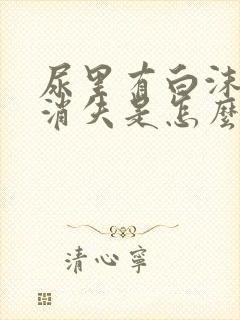 尿里有白沫
消失是怎麼
清心寧